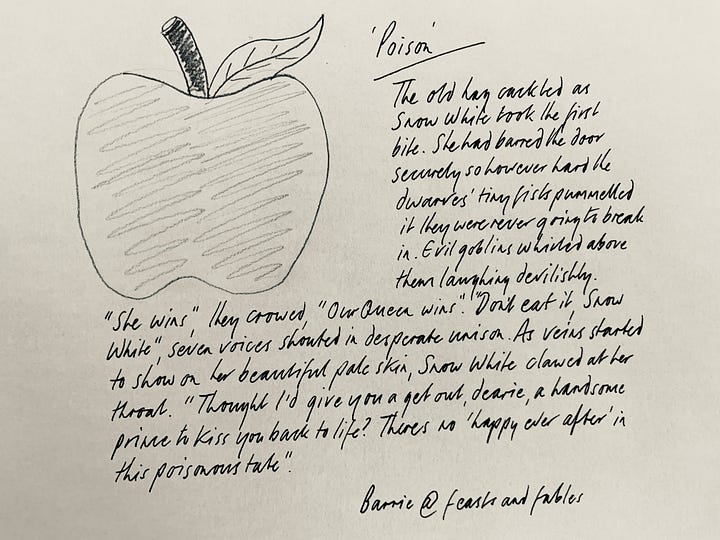 'Poison'
The old hag cackled as
Snow White took the first
bite. She had barred the door
securely so however hard the
dwarves' tiny fists pummelled
it they were never going to break
in. Evil goblins whirled above
them laughing devilishly.
"She wins", they crowed, "Our Queen wins". "Don't eat it, Snow
White", seven voices shouted in desperate unison. As veins started
to show on her beautiful pale skin, Snow White clawed at her
throat. "Thought I'd give you a get out, dearie, a handsome
prince to kiss you back to life? There's no 'happy ever after' in
this poisonous tale".
Barrie @ feasts and fables